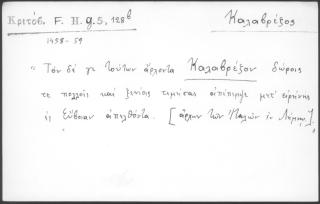 Κριτόβ. F. H. g. 5, 128b Καλαβρέξος
1458-59
"Τὸν δέ γε τούτων ἄρχοντα Καλαβρέξον δώροις
τε πολλοῖς καὶ ξενίοις τιμήσας ἀπέπεμψε μετ' εἰρήνης
ἐς Εὔβοιαν ἀπελθόντα. [ἄρχων τῶν Ἰταλῶν ἐν Λήμνῳ.]